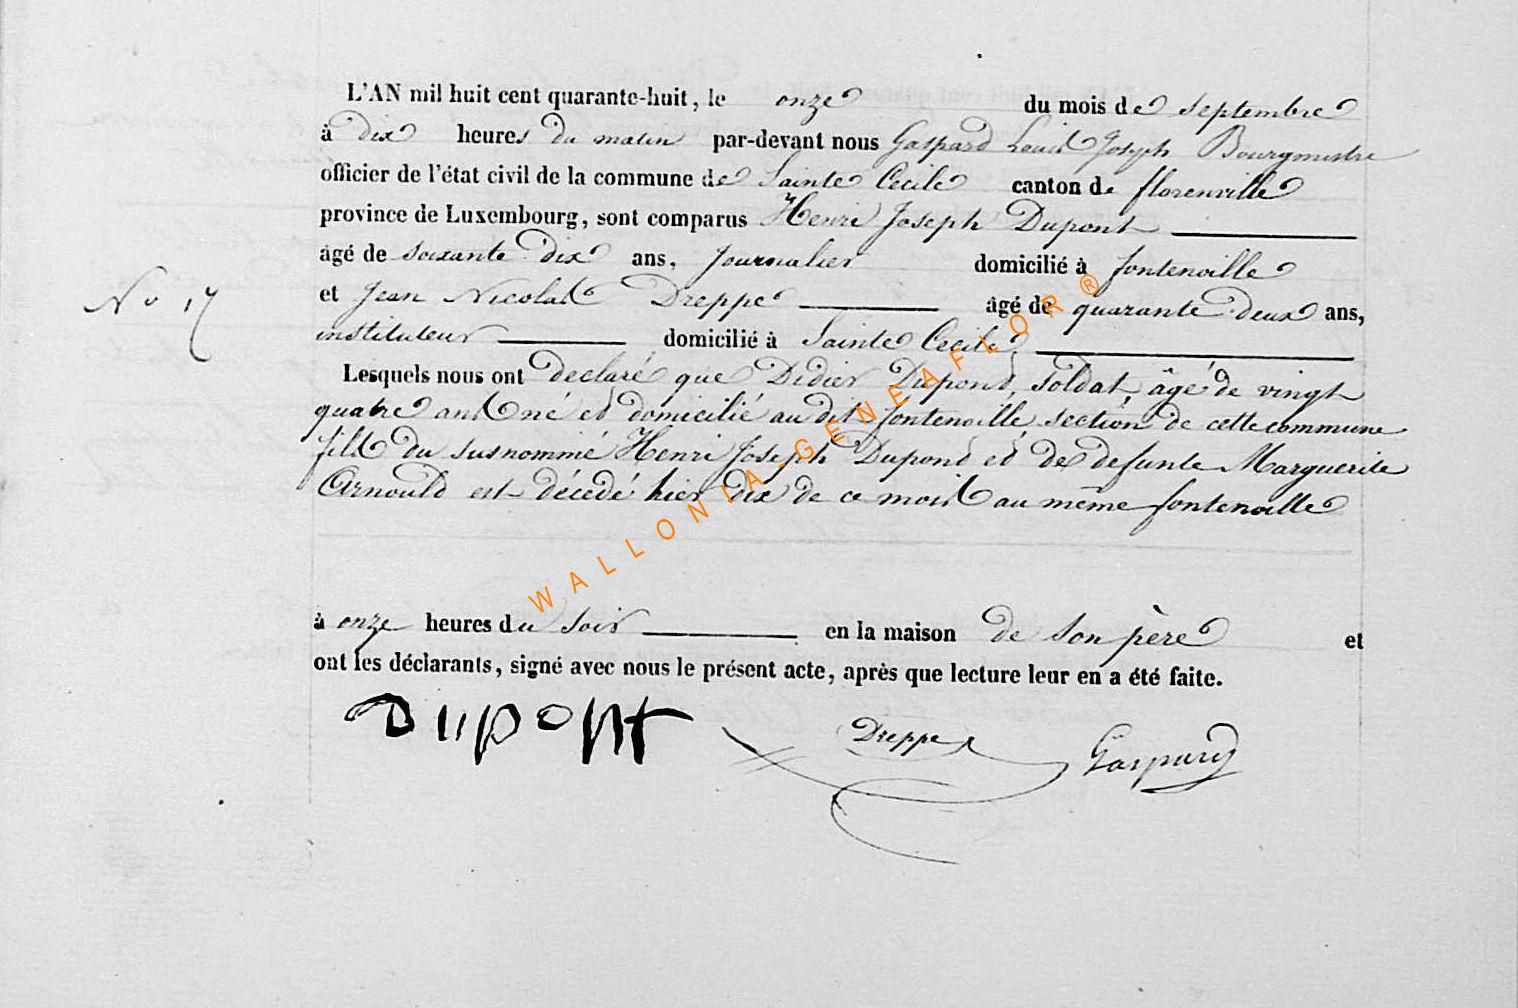 L'AN mil huit cent quarante-huit, le onze du mois de septembre
à dix heures du matin par-devant nous Gaspard Louis Joseph Bourgmestre
officier de l'état civil de la commune de Sainte Cecile canton de florenville
province de Luxembourg, sont comparus Henri Joseph Dupont
âgé de soixante dix ans, Journalier domicilié à fontenoille
N° 17
et Jean Nicolas Dreppe âgé de quarante deux ans,
instituteur domicilié à Sainte Cecile
Lesquels nous ont declaré que Didier Dupond, soldat, âgé de vingt
quatre ans né et domicilié au dit fontenoille, section de cette commune
fils du susnommé Henri Joseph Dupond et de defunte Marguerite
Arnould est décédé hier dix de ce mois au même fontenoille
à onze heures du soir en la maison de son père et
ont les déclarants, signé avec nous le présent acte, après que lecture leur en a été faite.
DUPONT Dreppe Gaspard
WALLONIA-GENEAFLOR ®